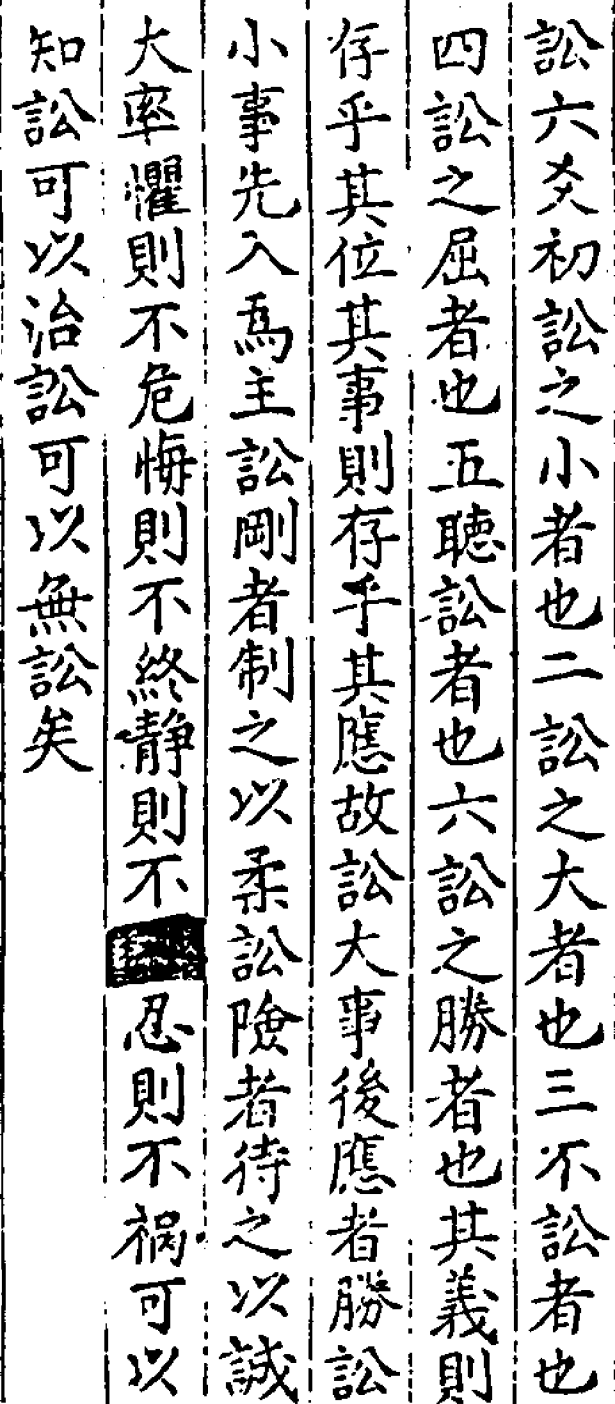 訟六爻初訟之小者也二訟之大者也三不訟者也
四訟之屈者也五聽訟者也六訟之勝者也其義則
存乎其位其事則存乎其應故訟大事後應者勝訟
小事先入爲主訟剛者制之以柔訟險者待之以誠
大率懼則不危悔則不終静則不忍則不禍可以
知訟可以治訟可以無訟矣